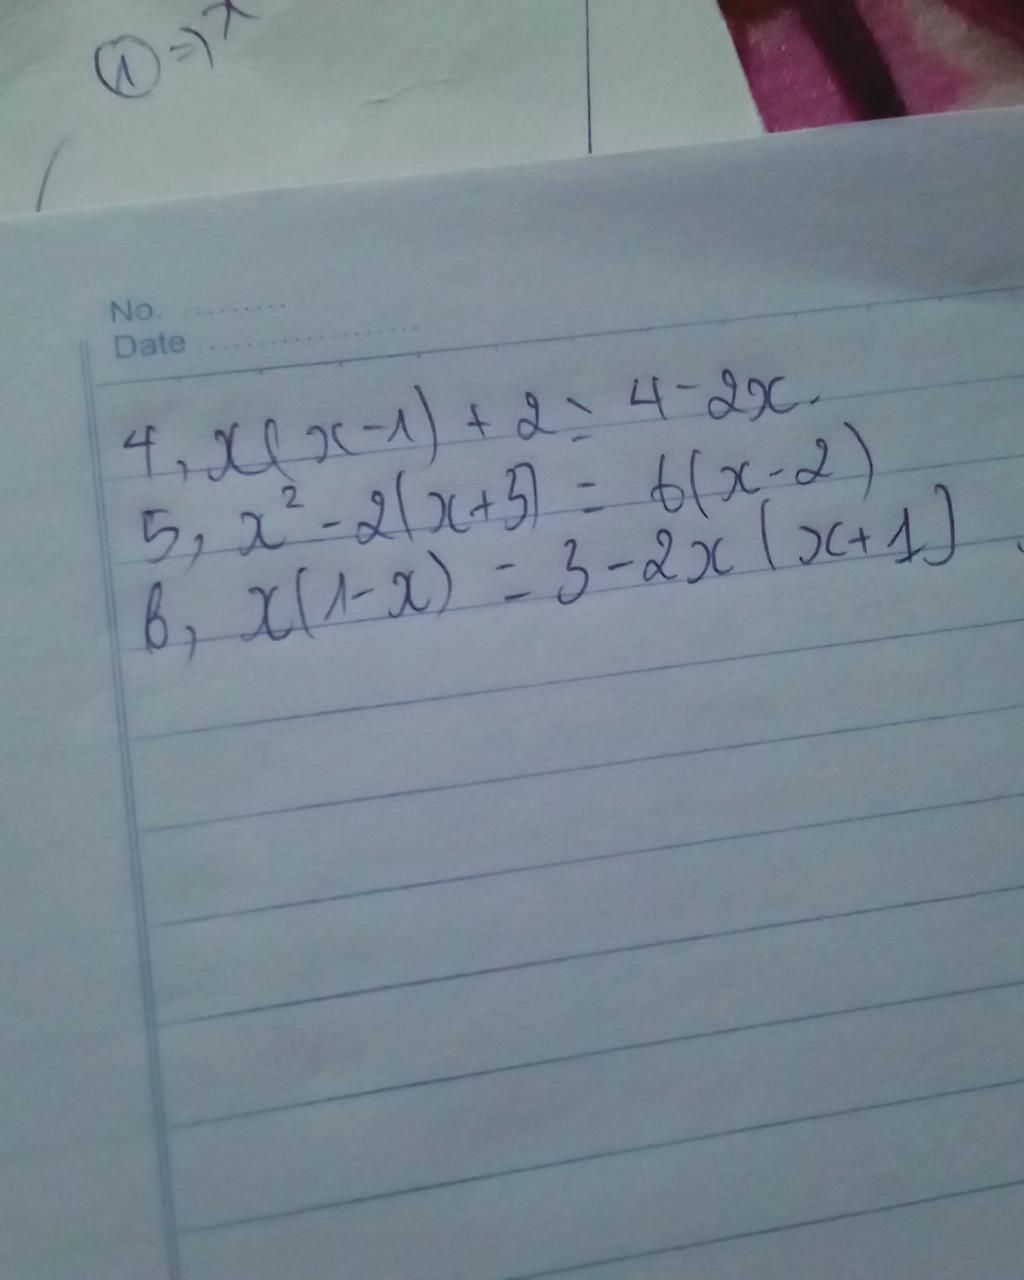 ① => x
No. ..........
Date ....................
4, x(x-1) + 2 = 4 - 2x.
5, x² - 2(x+3) = 6(x-2)
6, x(1-x) = 3 - 2x(x+1)